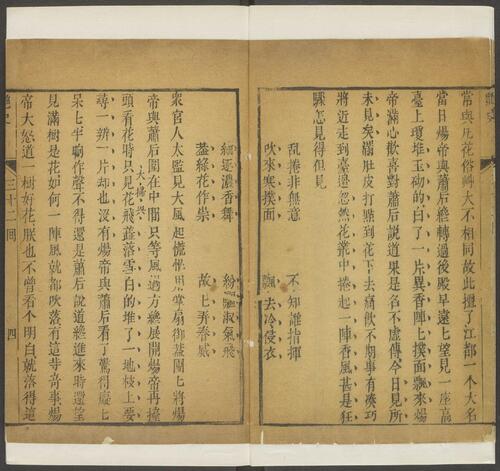 常與凡花俗卉大不相同故此擅了江都一個大名
當日煬帝與蕭后纔轉過後殿早遠七望見一座高
臺上瓊堆玉砌的白了一片異香陣七撲面飄來煬
帝滿心歡喜對蕭后說道果是名不虛傳今日見所
未見矣滿肚皮打點到花下去痛飲不期事有湊巧
將近走到臺邊忽然花叢中捲起一陣香風甚是狂
驟怎見得但見
亂捲非無意 不知誰指揮
吹來寒撲面 飄去冷侵衣
細逐濃香舞 紛隨淑氣飛
蓋緣花作祟 故七弄春威
衆官人太監見大風起慌忙用掌扇御蓋團七將煬
帝與蕭后圍在中間只等風過方纔展開煬帝再擡
頭看花時只見花飛蕊落雪白的堆了一地枝上要
大掃興
尋一瓣一片却也沒有煬帝與蕭后看了驚得癡七
呆七半晌作聲不得還是蕭后說道纔進來時還望
見滿樹是花如何一陣風就都吹落有這等奇事煬
帝大怒道一樹好花朕也不曾看个明白就落得這
艷史
三十二囘
四